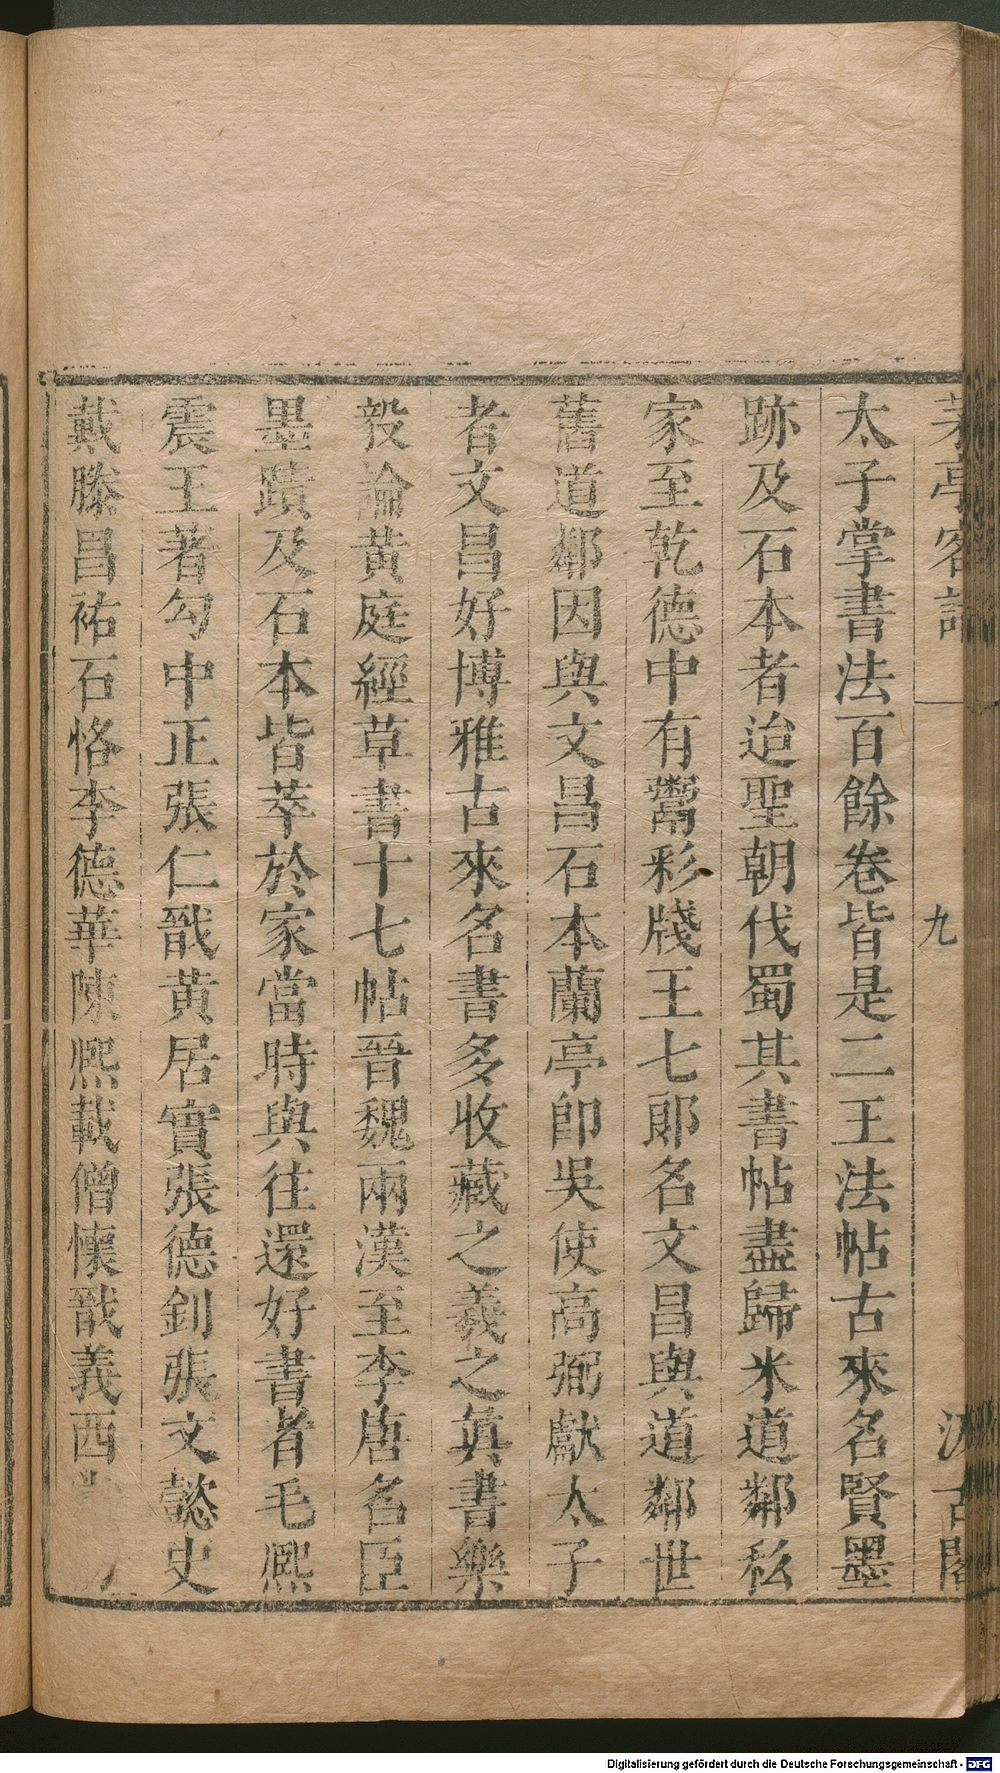 茅亭客話 九 汲古閣
太子掌書法百餘卷皆是二王法帖古來名賢墨
跡及石本者迨聖朝伐蜀其書帖盡歸米道鄰私
家至乾德中有鬻彩牋王七郞名文昌與道鄰世
舊道鄰因與文昌石本蘭亭卽吳使高弼獻太子
者文昌好博雅古來名書多收藏之羲之眞書樂
毅論黃庭經草書十七帖晉魏兩漢至李唐名臣
墨蹟及石本皆萃於家當時與往還好書者毛熙
震王著勾中正張仁戩黃居實張德釗張文懿史
戴滕昌祐石恪李德華陳熙載僧懷戩義西
Digitalisierung gefördert durch die Deutsche Forschungsgemeinschaft - DFG